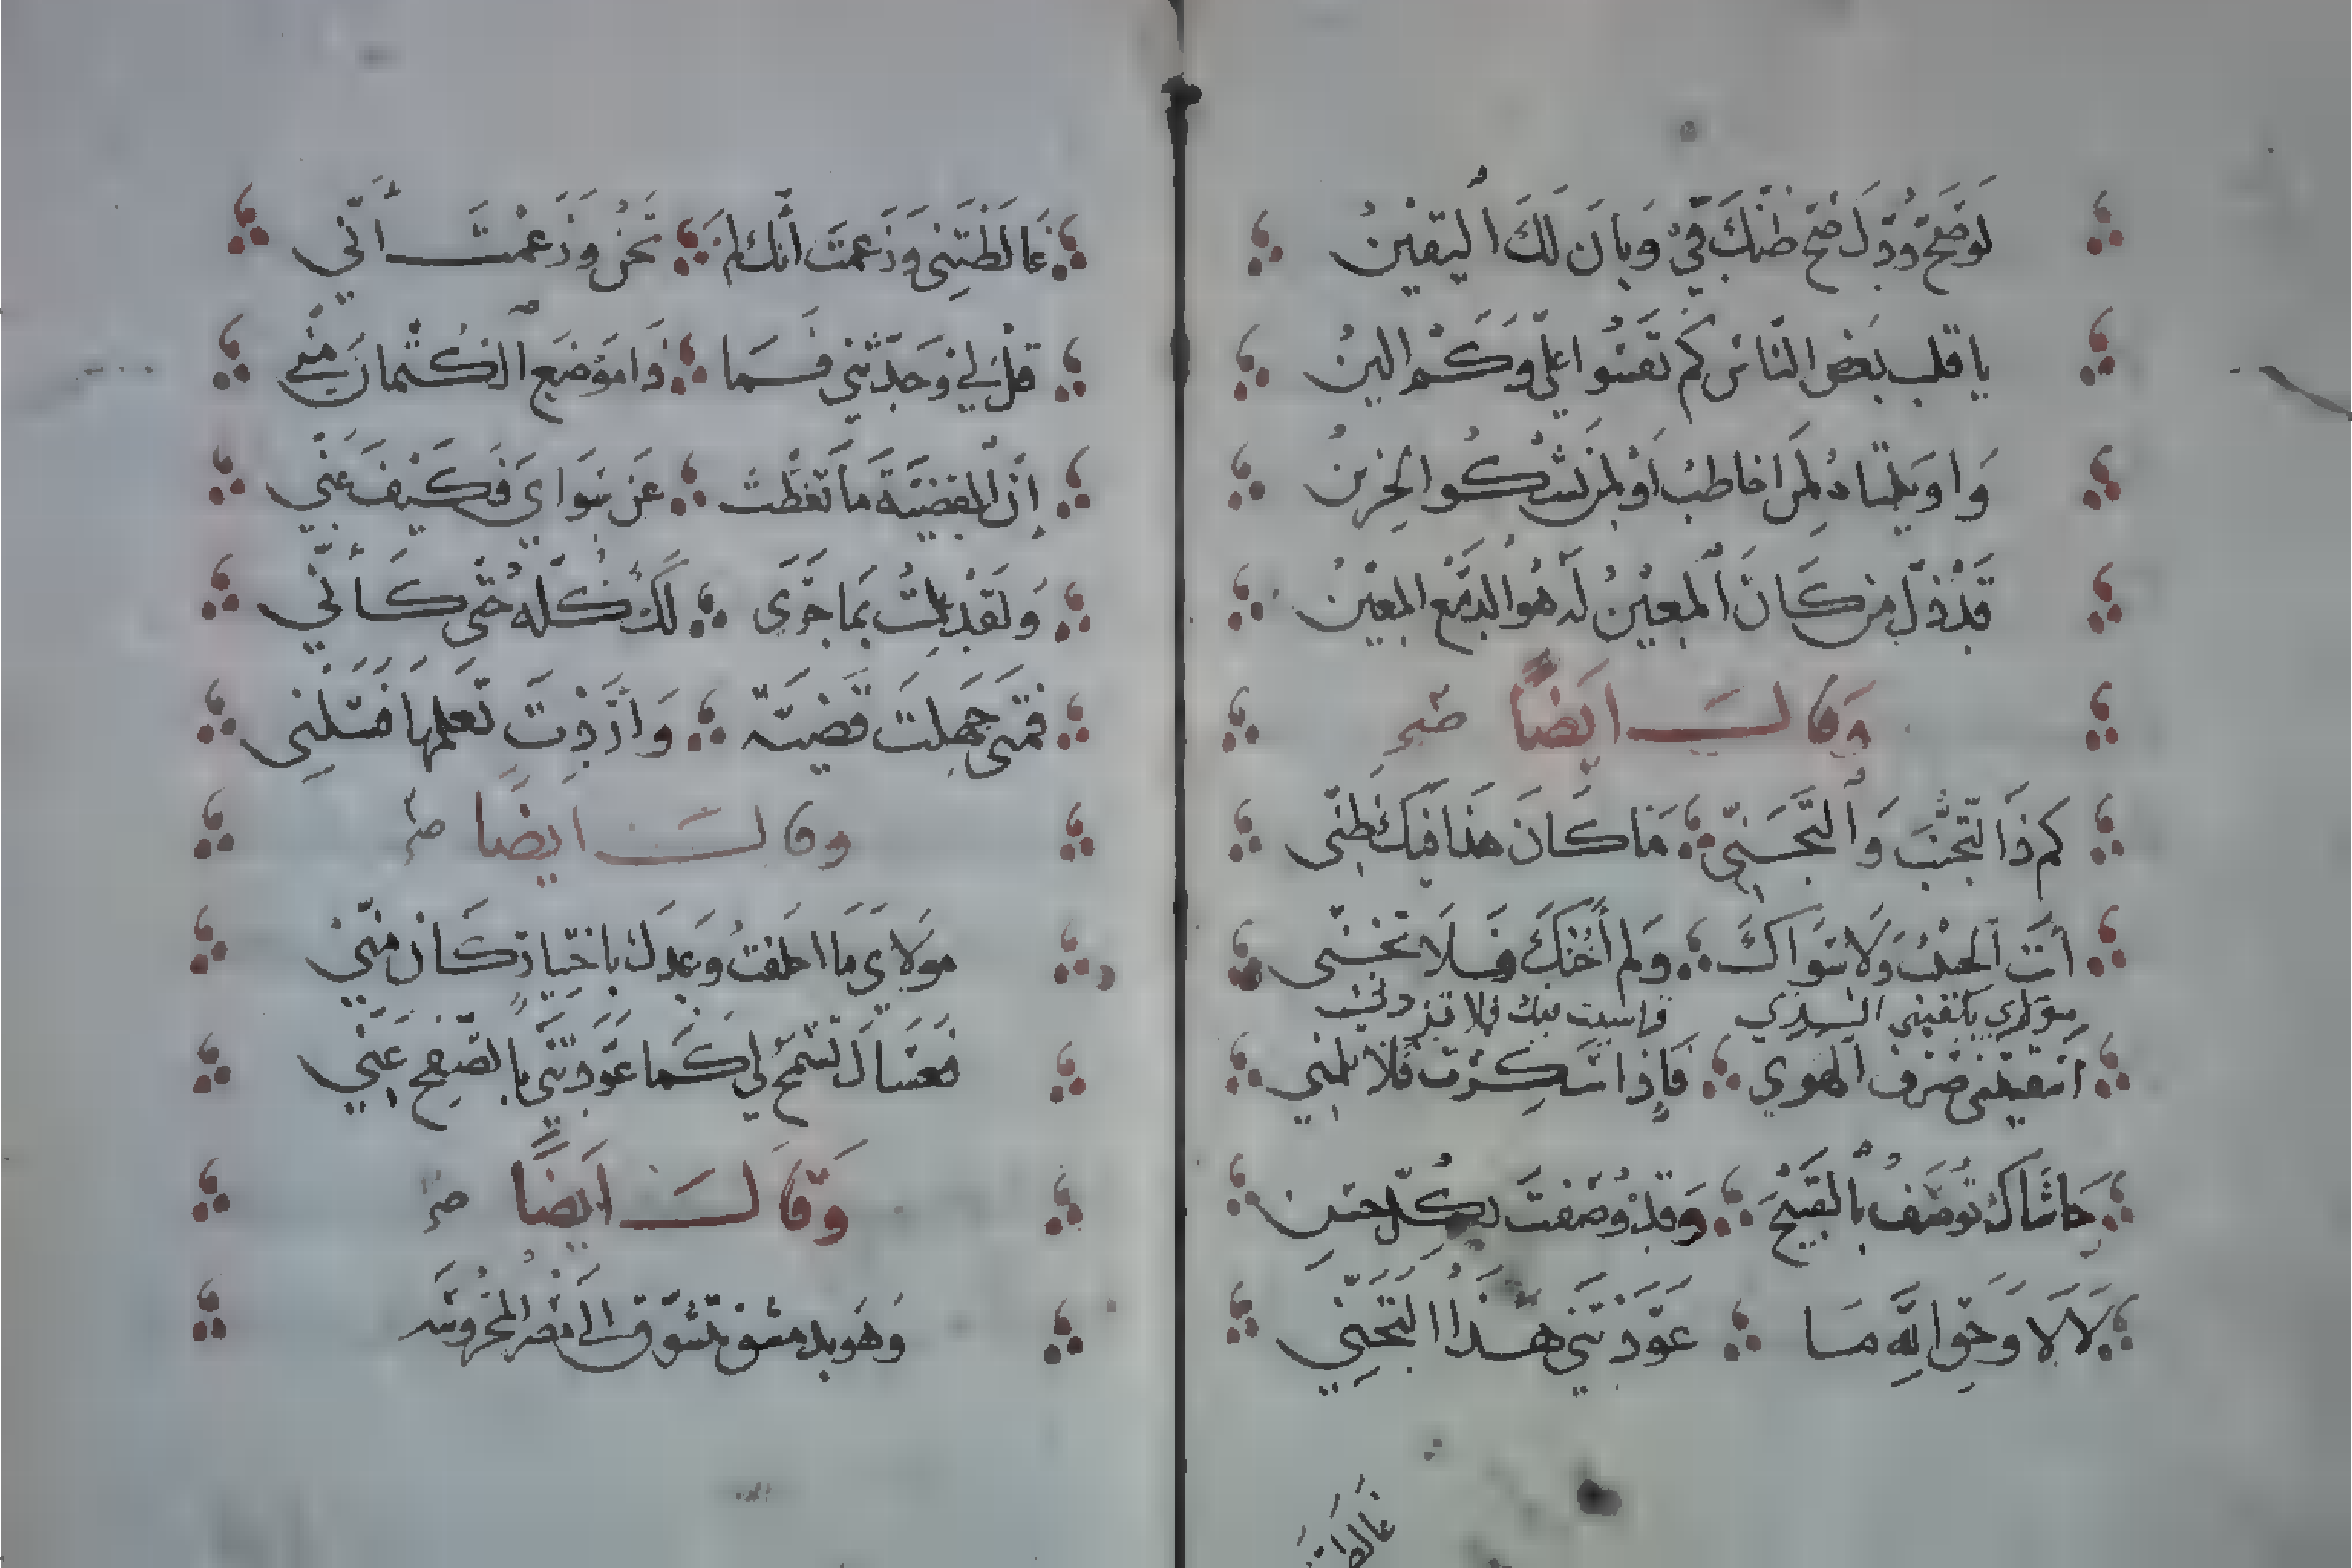 لَوْ صَحَّ وُدّلَ صَحَّ ظَنّكَ فيَّ وَبَانَ لَكَ اليَقِيْنُ
يا قلب بَعْض النّاس كم تَقسُوا عليّ وَكَم الينُ
وَا وَيلتاهُ لِمَن اخاطبُ أوْ لمن يشكُوا الحزينُ
قَدْ ذلّ مَن كَانَ اَلمعِيْنُ لَه هُو الدَّمع المعِيْنُ
وَقالَ ايَضاً
كم ذَا التَّجنُّبَ وَاَلتَّجَنّي مَا كَانَ هذا فيكَ ظنّى
أنتَ اَلحبيْبُ وَلاَ سِوَاكَ وَلم أَخُنْكَ فَلاَ تخنّى
مولاي يكفيني الذي قاسيت فيك فلا تزدني
أسقيتنى صَرف الهوي فَإِذا سَكِرْت فَلا تلمني
حَاشَاك تُوصَفُ بالقَبيْحِ وَقَدْ وُصفتَ بِكُلّ حسْنِ
لاَلاَ وَحَقّ اللهِ مَا عَوّدْتَنِي هَذا التجنّي
غالطتنى
غَالَطْتَنِى وَزَعَمتَ أنك لَمْ تَخُن وَزَعَمْتَ أَنّي
قلْ لي وَحَدّثني فَمَا ذَا موْضعَ الكُتْمانَ مِنّي
إنّ القضيّةَ مَا تَغَطّتْ عَن سِوَايَ فَكَيْفَ عنّي
وَلقَد علِمْتُ بمَا جَرَى لَكَ كُلّه حتّى كَأنّي
فمتى جَهِلتَ قضيّة وَأرَدْتَ تَعلمها فَسَلنِى
وقالَ ايضًا
مولاي مَا اخلفتُ وَعدَك باختيارٍ كَان منّي
فعَسَاكَ تسْمَحُ لي كَما عَوّدتَني بالصّفحِ عَنّي
وَقَالَ ايَضًا
وَهوَ بدمشق يتشوّق الى مصر المحروسَه